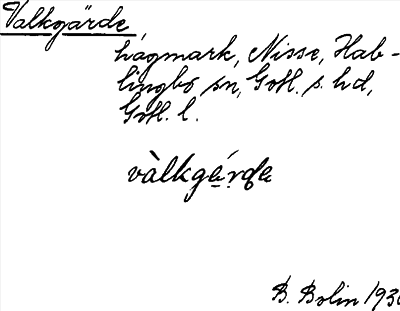 Valkgärde
hagmark, Nisse, Hab-
lingbo sn, Gotl. s. hd,
Gotl. l.
vàlkgę́rdę
B. Bolin 193